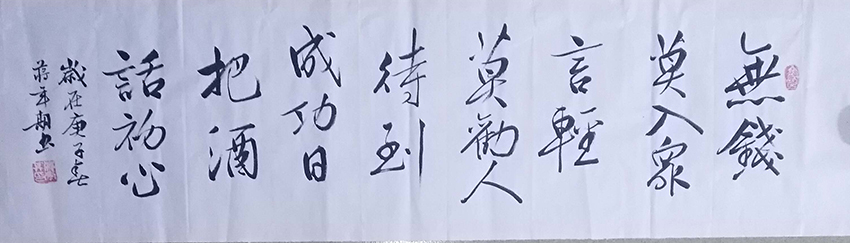 無錢
莫入眾
言輕
莫勸人
待到
成功日
把酒
話初心
歲在庚子春
蔣軍朝書